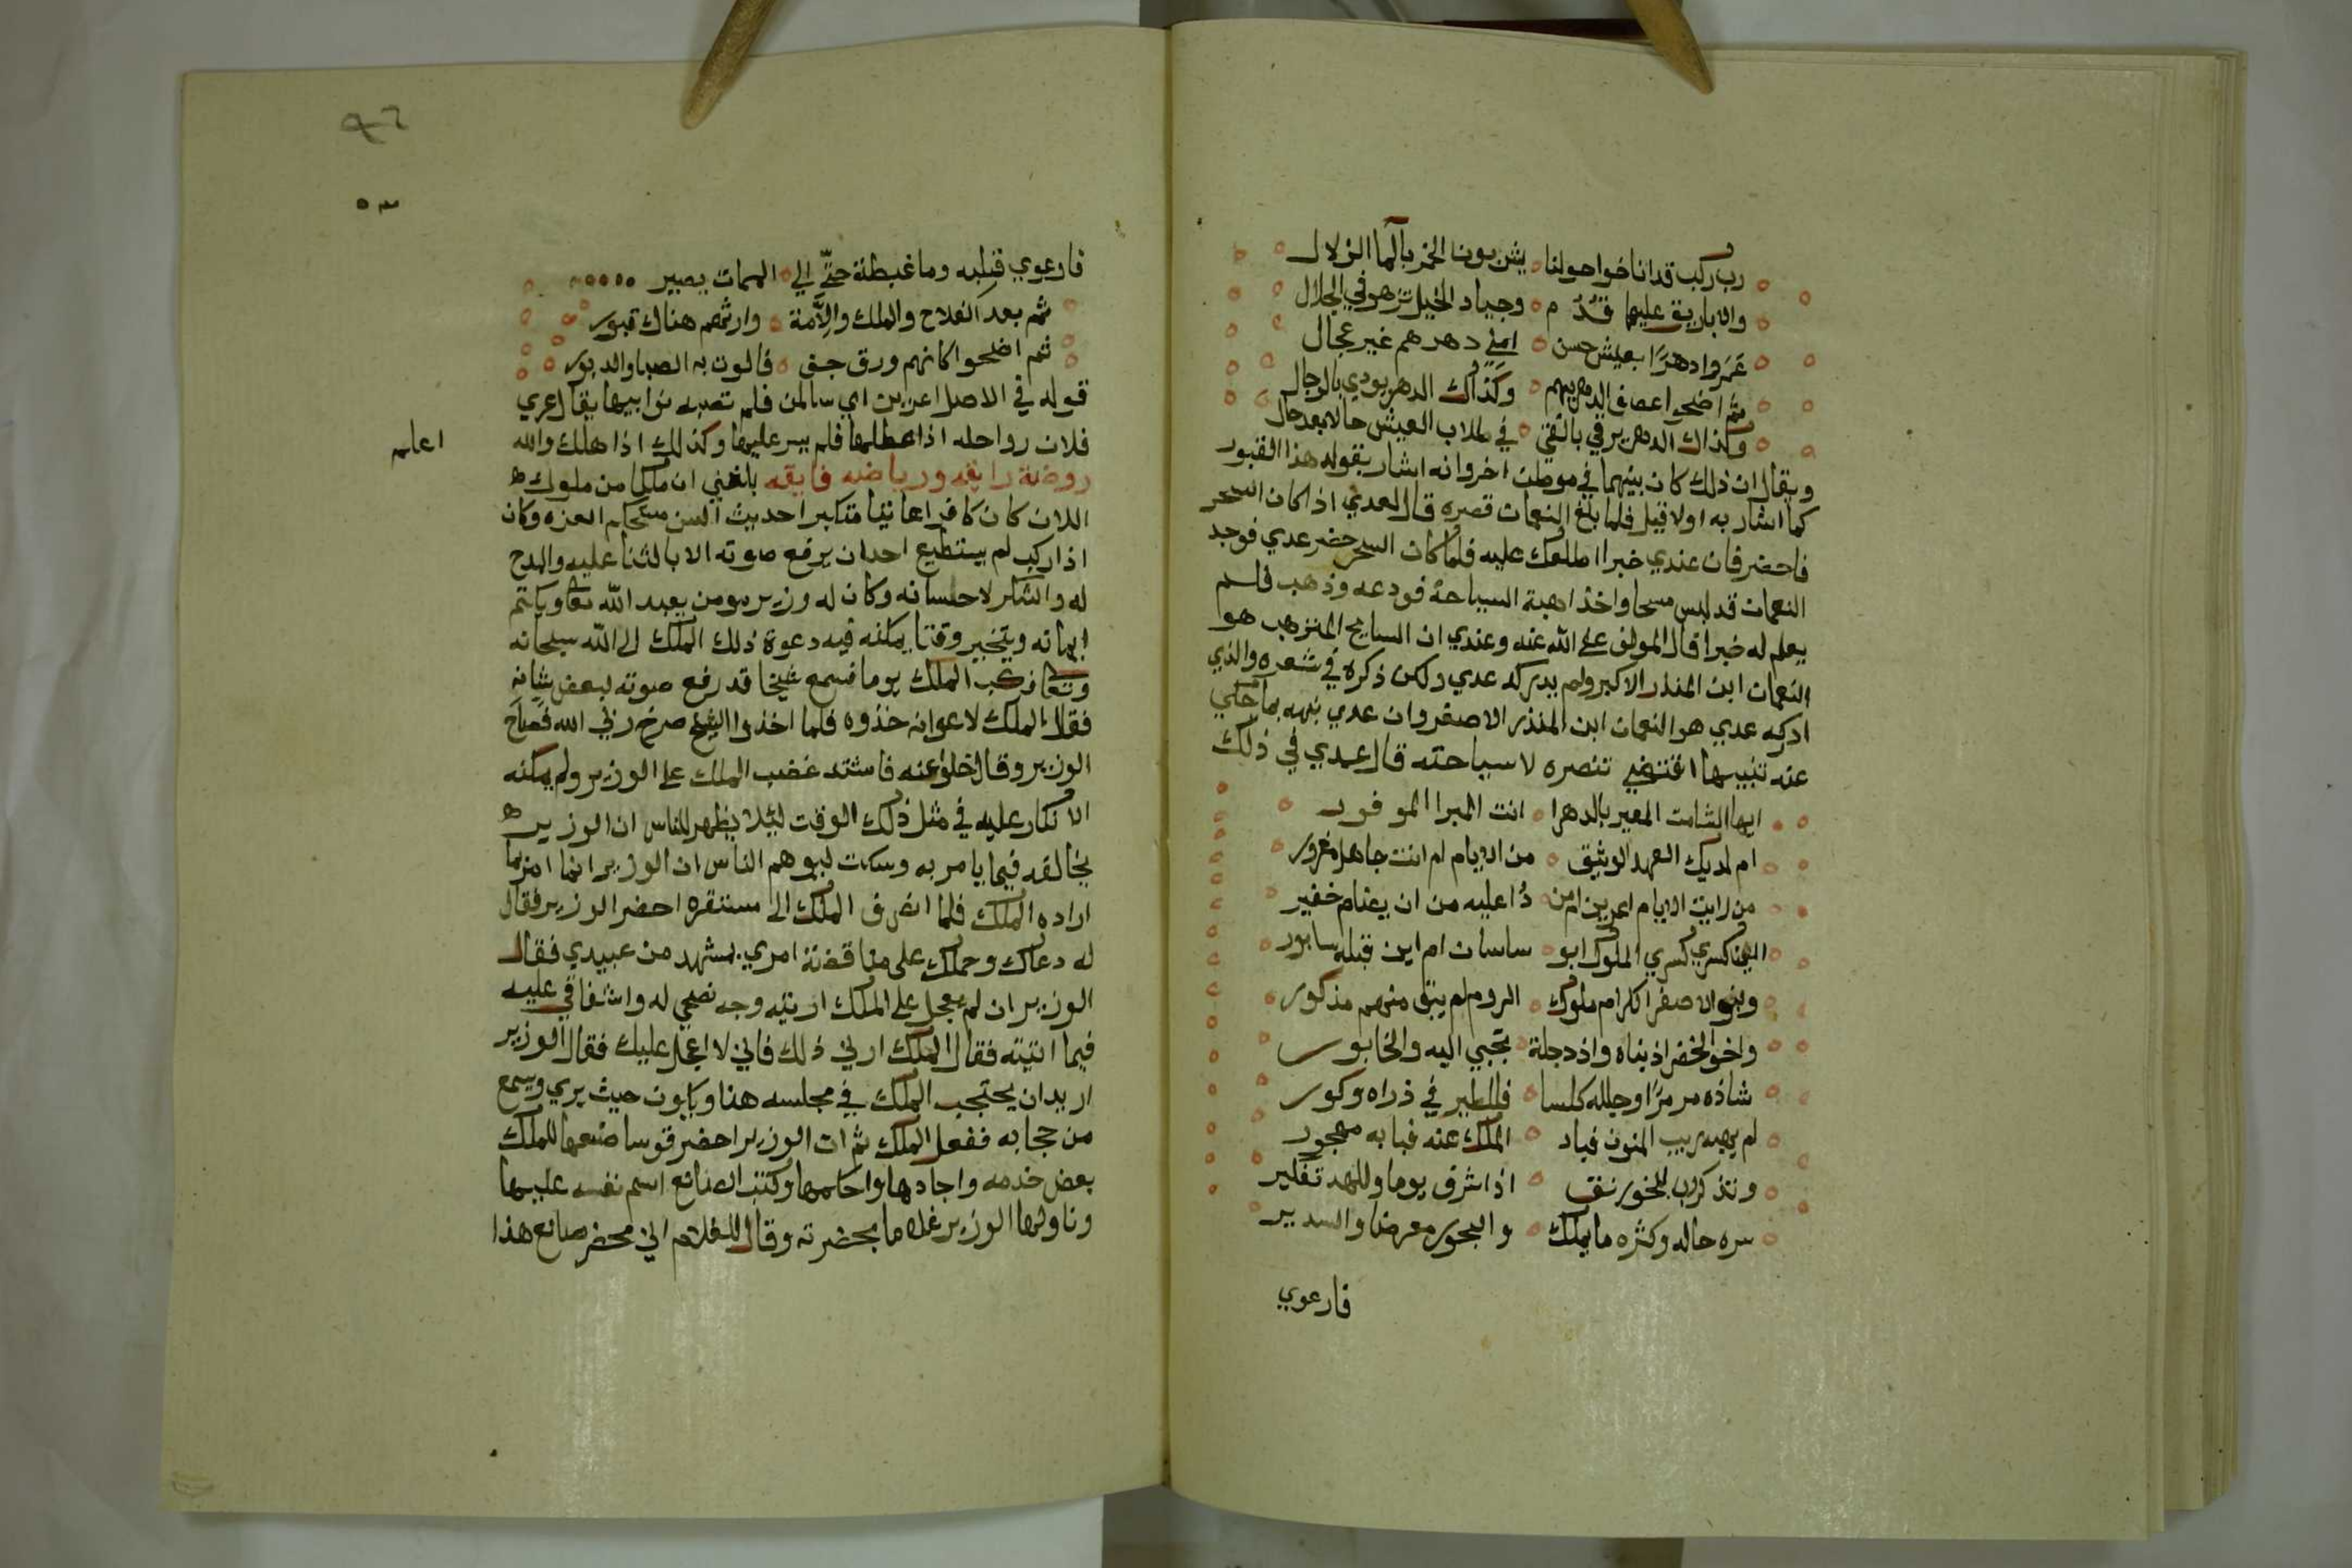 رب ركب قد اناخوا حولنا ه يشربون الخمر بالما الزلال
والاباريق عليها قُدُ م ه وجياد الخيل تزهو في الجلال
عَمَروا دهرًا بعيش حسن ه امني دهرهم غير عجال
ثم اضحوا عصف الدهر بهم ه وكذاك الدهر يودي بالرجال
وكذاك الدهر يرمي بالفتي ه في طلاب العيش حالا بعد حال
ويقال ان ذلك كان بينهما في موطن اخر وانه اشار بقوله هذا القبور
كما اشار به اولا قيل فلما بلغ النعمان قصره قال لعدي اذا كان السحر
فاحضر فان عندي خبرا اطلعك عليه فلما كان السحر حضر عدي فوجد
النعمان قد لبس مسحا واخذ اهبة السياحة فودعه وذهب فلم
يعلم له خبرا قال المولف عفي الله عنه وعندي ان السايح المترهب هو
النعمان ابن المنذر الاكبر ولم يدركه عدي ولكن ذكره في شعره والذي
ادركه عدي هو النعمان ابن المنذر الاصغر وان عدي نبهه بما حكي
عنه تنبيها اقتضي تنصره لا سياحته قال عدي في ذلك
ايها الشامت المعير بالدهرا ه انت المبرا الموفور
ام لديك العهد الوثيق ه من الايام ام انت جاهل مغرور
من رايت الايام اعرين ام من ه ذا عليه من ان يضام خفير
اين كسري كسري الملوك ابو ه ساسان ام اين قبله سابور
وبنو الاصفر الكرام ملوك ه الروم لم يبق منهم مذكور
واخو الخضر اذ بناه واذ دجلة ه تجبي اليه والخابور
شاده مرمرًا وجلله كلسا ه فللطير في ذراه وكور
لم يهبه ريب المنون فباد ه الملك عنه فبابه مهجور
وتذكر رب الخورنق ه اذ اشرف يوما وللهد تفكير
سره حاله وكثره ما يملك ه والبحور معرضا والسدير
فارعوي
٥٣
فارعوي قبله وما غبطة حتّي الي ه الممات يصير
ثم بعد الفلاح والملك والاِمَّة ه وارثهم هناك قبور
ثم اضحوا كانهم ورق جف ه فالوت به الصبا والدبور
قوله في الاصل اعرين اي سالمن فلم تصبه نوابيها يقال عري
فلان رواحله اذا عطلها فلم يسر عليها وكذلك اذا هلك والله
اعلم
روضة رايقه ورياضه فايقه بلغني ان ملكا من ملوك
اللان كان كافرا عاتيا متكبرا حديث السن مستحكم العزه وكان
اذا ركب لم يستطيع احدان يرفع صوته الا بالثنا عليه والمدح
له والشكر لاحسانه وكان له وزير مومن يعبد الله تعا ويكتم
ايمانه ويتخير وقتا يمكنه فيه دعوة ذلك الملك الي الله سبحانه
وتعا فركب الملك يوما فسمع شيخا قد رفع صوته ببعض شانه
فقال الملك لاعوانه خذوه فلما اخذوا الشيخ صرخ ربي الله فصاح
الوزير وقال خلو عنه فاشتد غضب الملك علي الوزير ولم يمكنه
الانكار عليه في مثل ذلك الوقت ليلا يظهر للناس ان الوزير
يخالفه فيما يامر به وسكت ليوهم الناس ان الوزير انما امر بما
اراده الملك فلما انصرف الملك الي مستقره احضر الوزير فقال
له دعاك وحملك علي مناقضة امري بمشهد من عبيدي فقال
الوزير ان لم يعجل علي الملك اريته وجه نصحي له واشفاقي عليه
فيما اتيته فقال الملك ارني ذلك فاني لا اعجل عليك فقال الوزير
اريدان يحتجب الملك في مجلسه هذا ويكون حيث يري ويسمع
من حجابه ففعل الملك ثم ان الوزير احضر قوسا صنعها للملك
بعض خدمه واجادها واحكمها وكتب الصانع اسم نفسه عليها
وناولها الوزير غلاما بحضرته وقال للغلام اني محضر صانع هذا